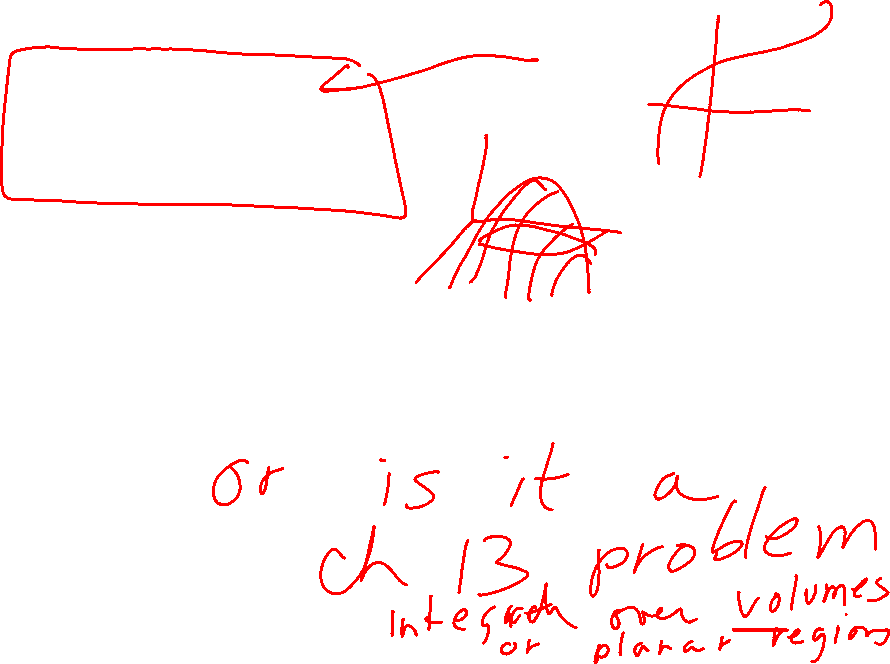 or is it a
ch 13 problem
over volumes
or planar regions